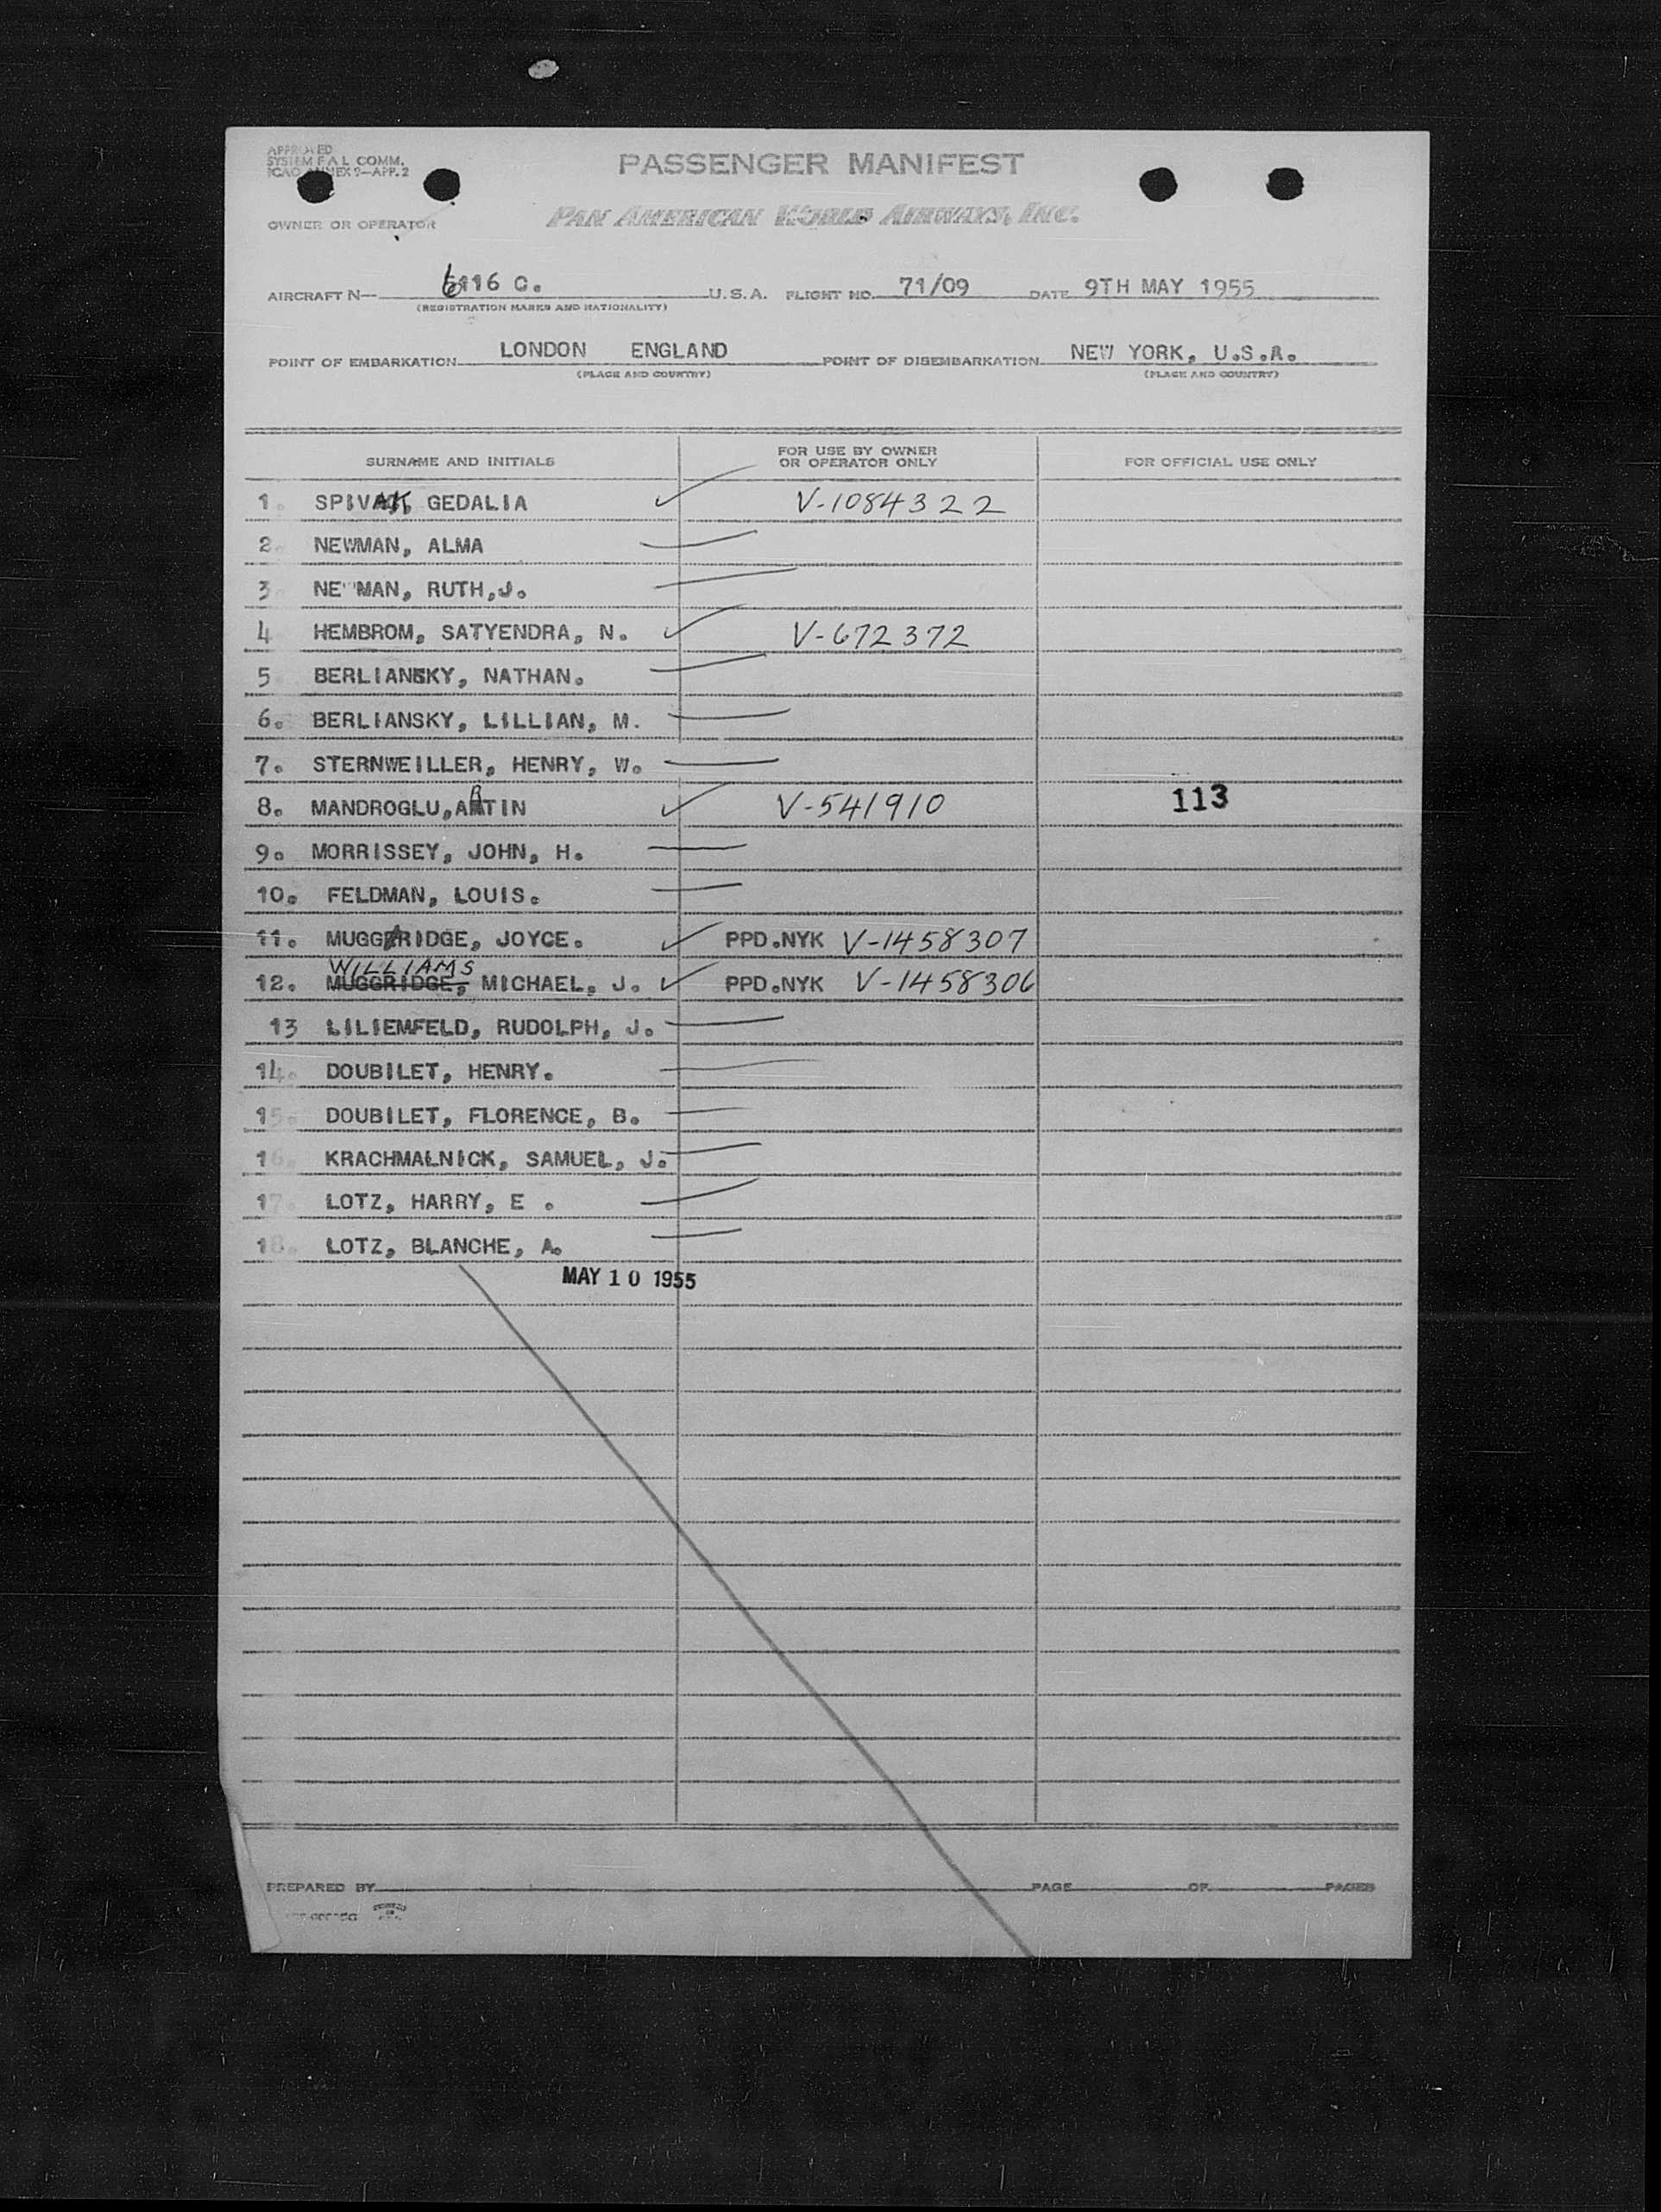 APPROVED
SYSTEM F A L COMM.
ICAO ANNEX 9—APP. 2
PASSENGER MANIFEST
OWNER OR OPERATOR PAN AMERICAN WORLD AIRWAYS, INC.
AIRCRAFT N— 6116 C. U.S.A. FLIGHT NO. 71/09 DATE 9TH MAY 1955
(REGISTRATION MARKS AND NATIONALITY)
POINT OF EMBARKATION LONDON ENGLAND POINT OF DISEMBARKATION NEW YORK, U.S.A.
(PLACE AND COUNTRY) (PLACE AND COUNTRY)
SURNAME AND INITIALS FOR USE BY OWNER OR OPERATOR ONLY FOR OFFICIAL USE ONLY
1. SPIVAK, GEDALIA V-1084322
2. NEWMAN, ALMA
3 NE"MAN, RUTH,J.
4 HEMBROM, SATYENDRA, N. V-672372
5 BERLIANSKY, NATHAN.
6. BERLIANSKY, LILLIAN, M.
7. STERNWEILLER, HENRY, W.
8. MANDROGLU,ARTIN V-541910 113
9. MORRISSEY, JOHN, H.
10. FELDMAN, LOUIS.
11. MUGGERIDGE, JOYCE. PPD.NYK V-1458307
WILLIAMS
12. MUGGRIDGE, MICHAEL, J. PPD.NYK V-1458306
13 LILIEMFELD, RUDOLPH, J.
14. DOUBILET, HENRY.
15. DOUBILET, FLORENCE, B.
16. KRACHMALNICK, SAMUEL, J.
17. LOTZ, HARRY, E .
18. LOTZ, BLANCHE, A.
MAY 10 1955
PREPARED BY PAGE OF PAGES